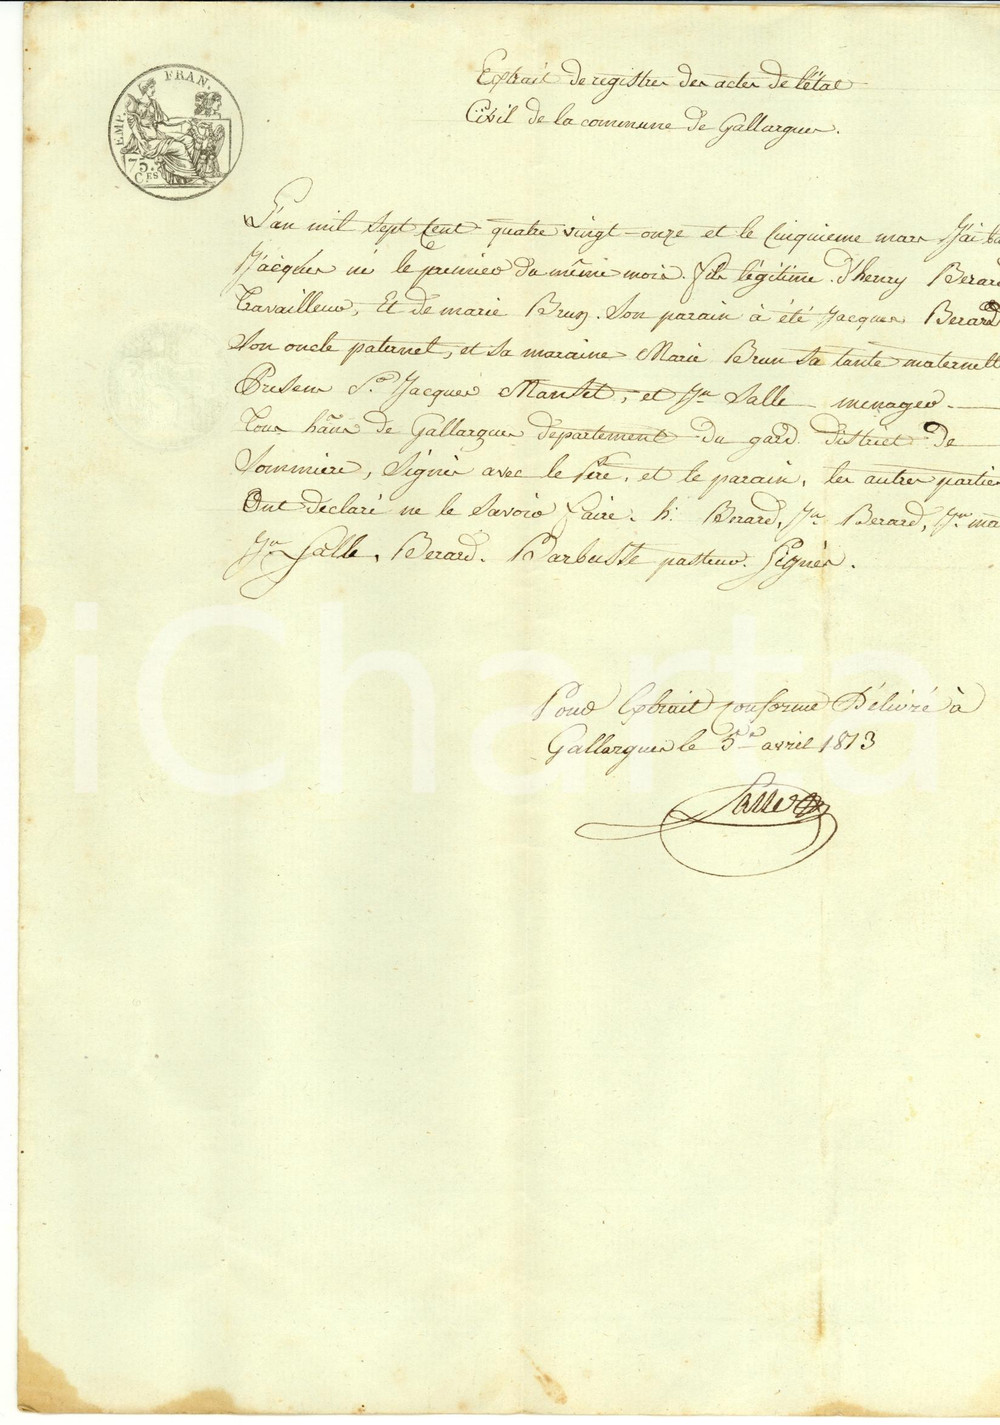 EMP. FRAN.
75. Ces
Extrait de registres des actes de l'état
Civil de la commune de Gallargues.
L'an mil sept cent quatre vingt-onze et le cinquieme mars J'ai ba
Jacques né le premier du même mois. fils légitime. d'henry Berard
Travailleur, Et de marie Brun. Son parain à été Jacques Berard
Son oncle paternel, et sa maraine Marie Brun sa tante maternelle
Presens Sr. Jacques et Jn Salle menager
Tous habns de Gallargues département du gard district de
Sommiere, Signés avec le père, et le parain, les autres parties
Ont déclaré ne le savoir faire. h. Berard, Jn Berard, Jn ma
Jn Salle, Berard. Barbusse pasteur. Signés.
iCharta
Pour Extrait conforme Délivré à
Gallargues le 5e avril 1813